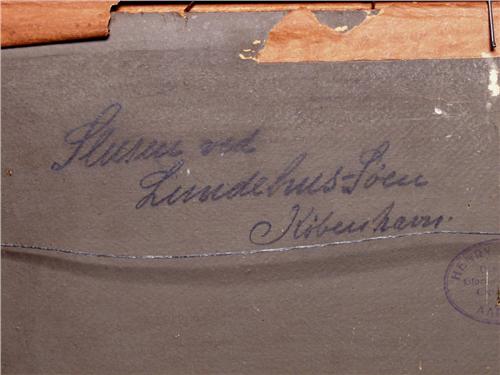 Slusen ved
Lundehus-Søen
København.
HENRY